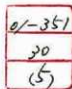 01-351
30
(5)